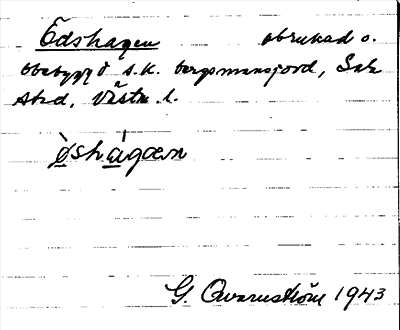 Edshagen obrukad o.
obebyggd s.k. bergsmansjord, Sala
stad, Västm. l.
ò̱shá̱gæn
G. Qvarnström 1943